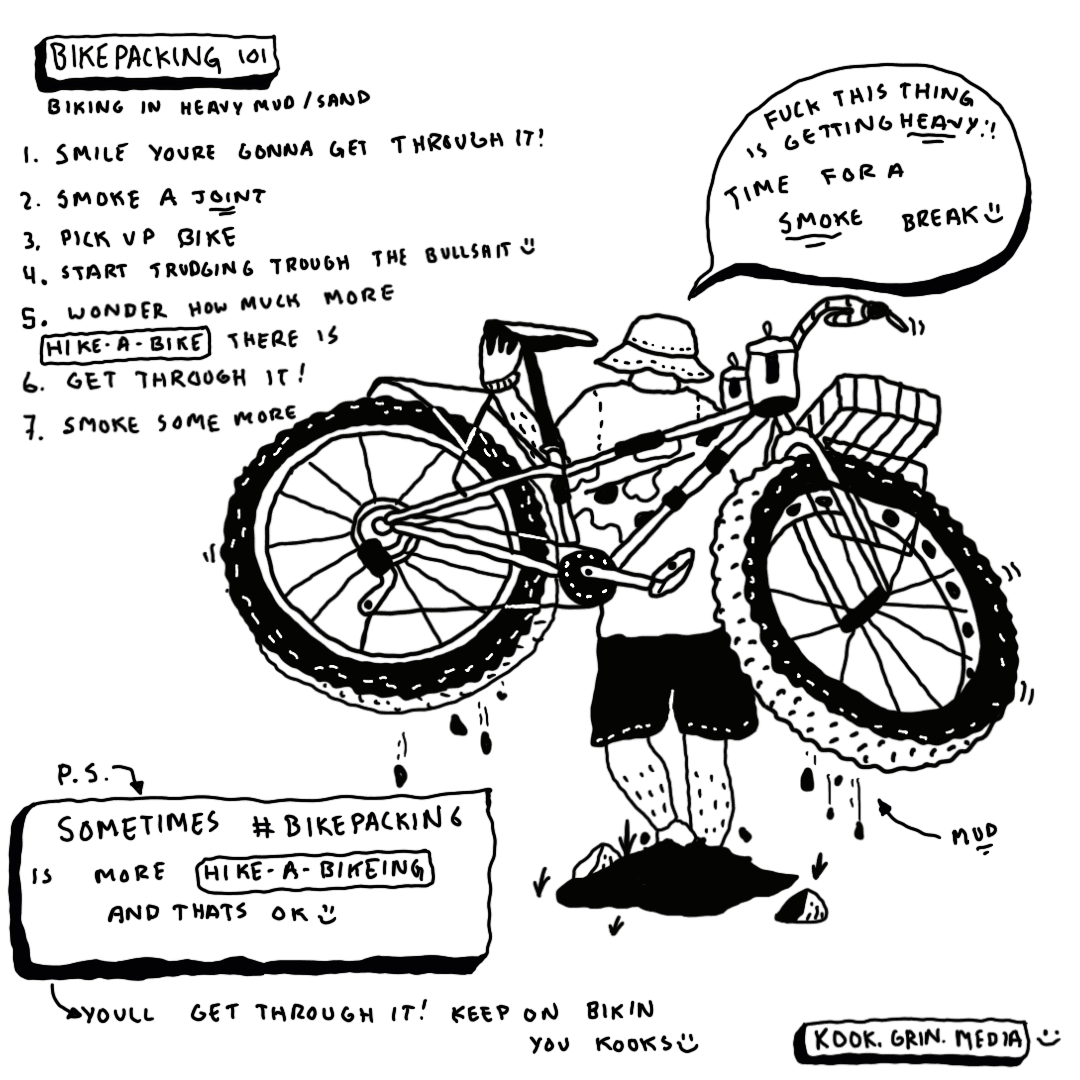 BIKEPACKING 101
BIKING IN HEAVY MUD/SAND
1. SMILE YOURE GONNA GET THROUGH IT!
2. SMOKE A JOINT
3, PICK UP BIKE
4. START TRUDGING TROUGH THE BULLSHIT
5. WONDER HOW MUCK MORE
HIKE-A-BIKE THERE IS
6. GET THROUGH IT!
7. SMOKE SOME MORE
FUCK THIS THING
IS GETTING HEAVY!!
TIME FOR A
SMOKE BREAK
MUD
P.S.
SOMETIMES #BIKEPACKING
IS MORE HIKE-A-BIKEING
AND THATS OK
YOULL GET THROUGH IT! KEEP ON BIKIN
YOU KOOKS
KOOK. GRIN. MEDIA